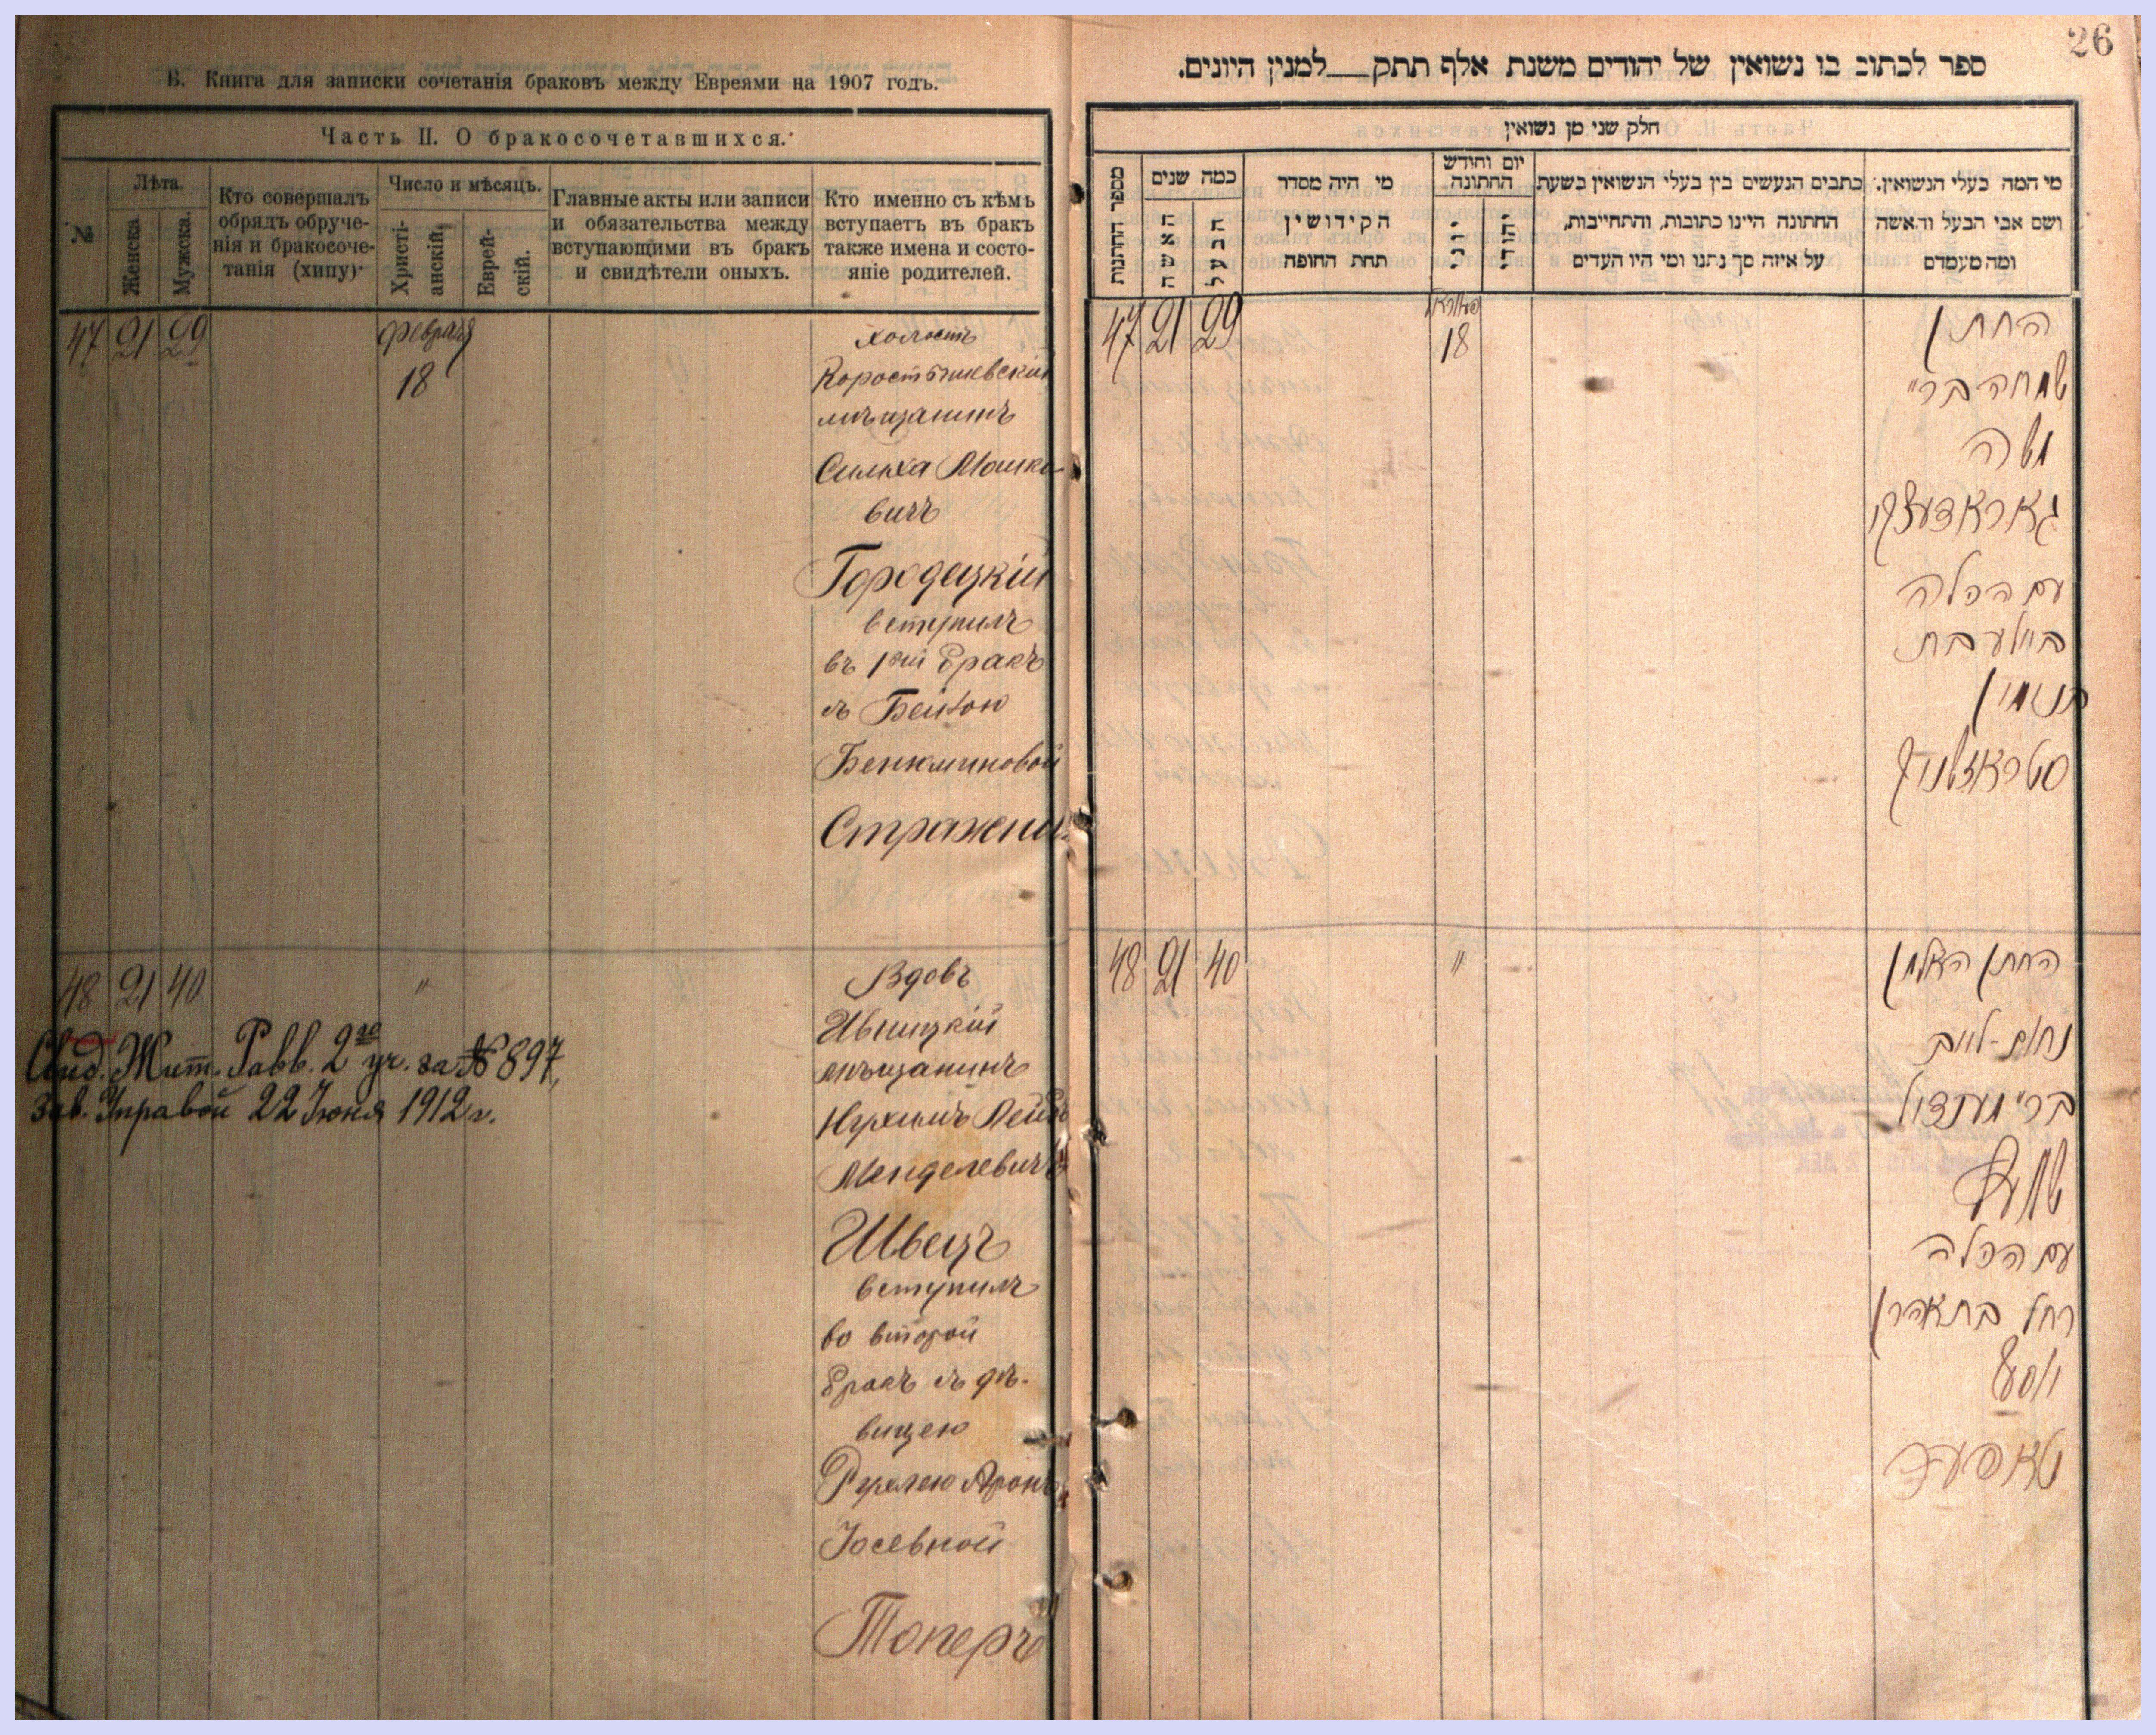 В. Книга для записки сочетанія браковъ между Евреями на 1907 годъ.
Часть II. О бракосочетавшихся.
№
Лѣта.
Женска.
Мужска.
Кто совершалъ
обрядъ обруче-
нія и бракосоче-
танія (хипу)
Число и мѣсяцъ.
Христі-
анскій.
Еврей-
скій.
Главные акты или записи
и обязательства между
вступающими въ бракъ
и свидѣтели оныхъ.
Кто именно съ кѣмъ
вступаетъ въ бракъ
также имена и состо-
яніе родителей.
47 21 29
Февраля
18
холостъ
Коростышевскій
мѣщанинъ
Симха Мошко
вичъ
Городецкій
вступилъ
въ 1ый бракъ
съ Бейлою
Бенюминовой
Стражни
48 21 40 "
Вдовъ
Ивницкій
мѣщанинъ
Нухимъ Лейбъ
Менделевичъ
Швецъ
вступилъ
во второй
бракъ съ дѣ-
вицею
Рухлею Аронъ
Іосевной
Топеръ
Свид. Жит. Равв. 2го уч. за № 897,
зав. Управой 22 Іюня 1912 г.
26
ספר לכתוב בו נשואין של יהודים משנת אלף תתק__למנין היונים.
חלק שני מן נשואין
מספר החתונות
כמה שנים
האשה
הבעל
מי היה מסדר
הקידושין
תחת החופה
יום וחודש
החתונה
יוני
יהודי
כתבים הנעשים בין בעלי הנשואין בשעת
החתונה היינו כתובות, והתחייבות,
על איזה סך נתנו ומי היו העדים
מי המה בעלי הנשואין.
ושם אבי הבעל והאשה
ומה מעמדם
47 21 29
18
החתן
שמחה ברי
משה
גאראדעצקי
עם הכלה
ביילע בת
בנימין
סטראזשניק
48 21 40 "
החתן האלמן
נחום-לייב
ברי מענדיל
שוועץ
עם הכלה
רחל בת אהרן
יוסף
טאפער